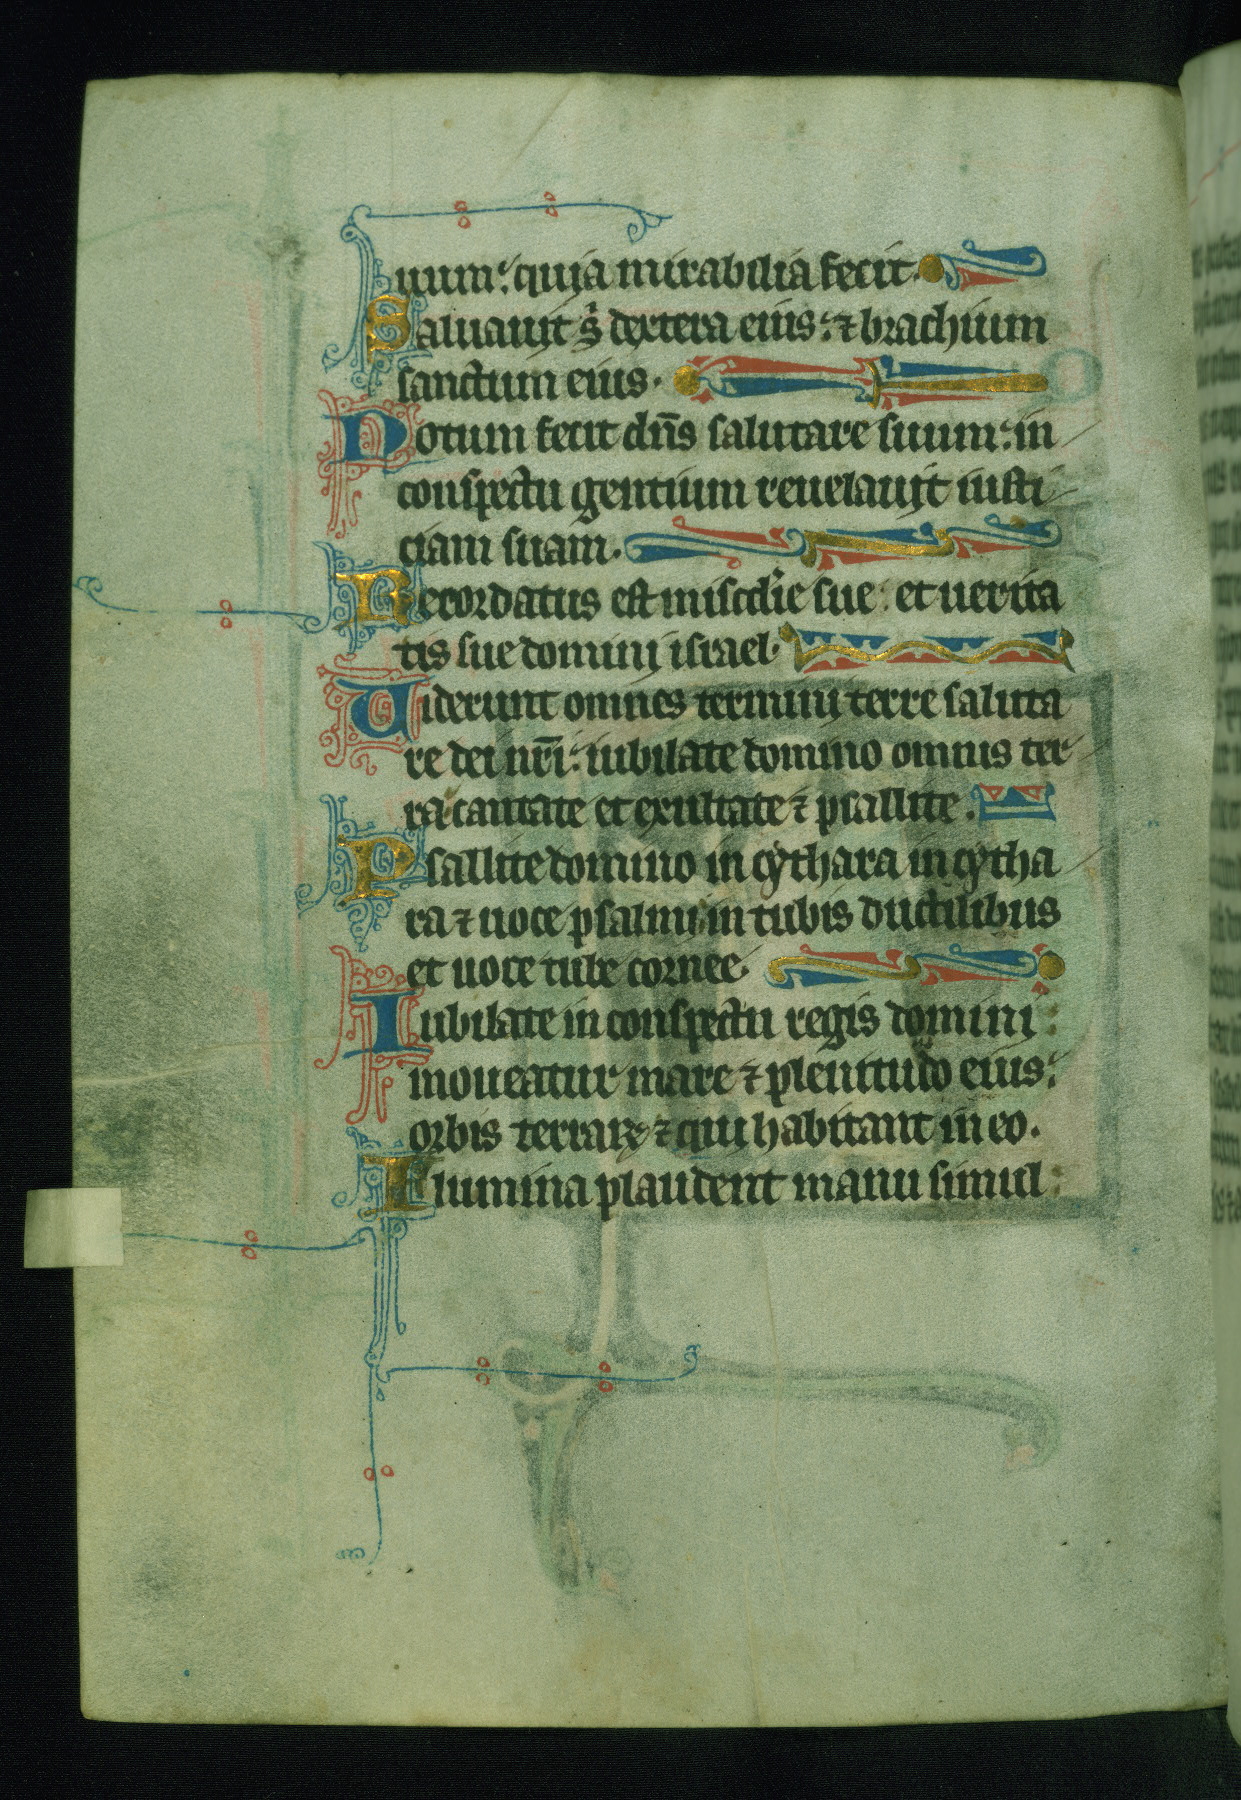 uum: quia mirabilia fecit.
Saluauit s̑ dextera eius: ⁊ brachium
sanctum eius.
Notum fecit dn̄s salutare suum: in
conspectu gentium reuelauit iusti
ciam suam.
Recordatus est misc̄die sue: et uerita
tis sue domini israel.
Uiderunt omnes termini terre saluta
re dei nr̄i: iubilate domino omnis ter
ra cantate et exultate ⁊ psallite.
Psallite domino in cythara in cytha
ra ⁊ uoce psalmi in tubis ductilibus
et uoce tube cornee.
Iubilate in conspectu regis domini:
moueatur mare ⁊ plenitudo eius:
orbis terrarꝝ ⁊ qui habitant in eo.
Flumina plaudent manu simul: